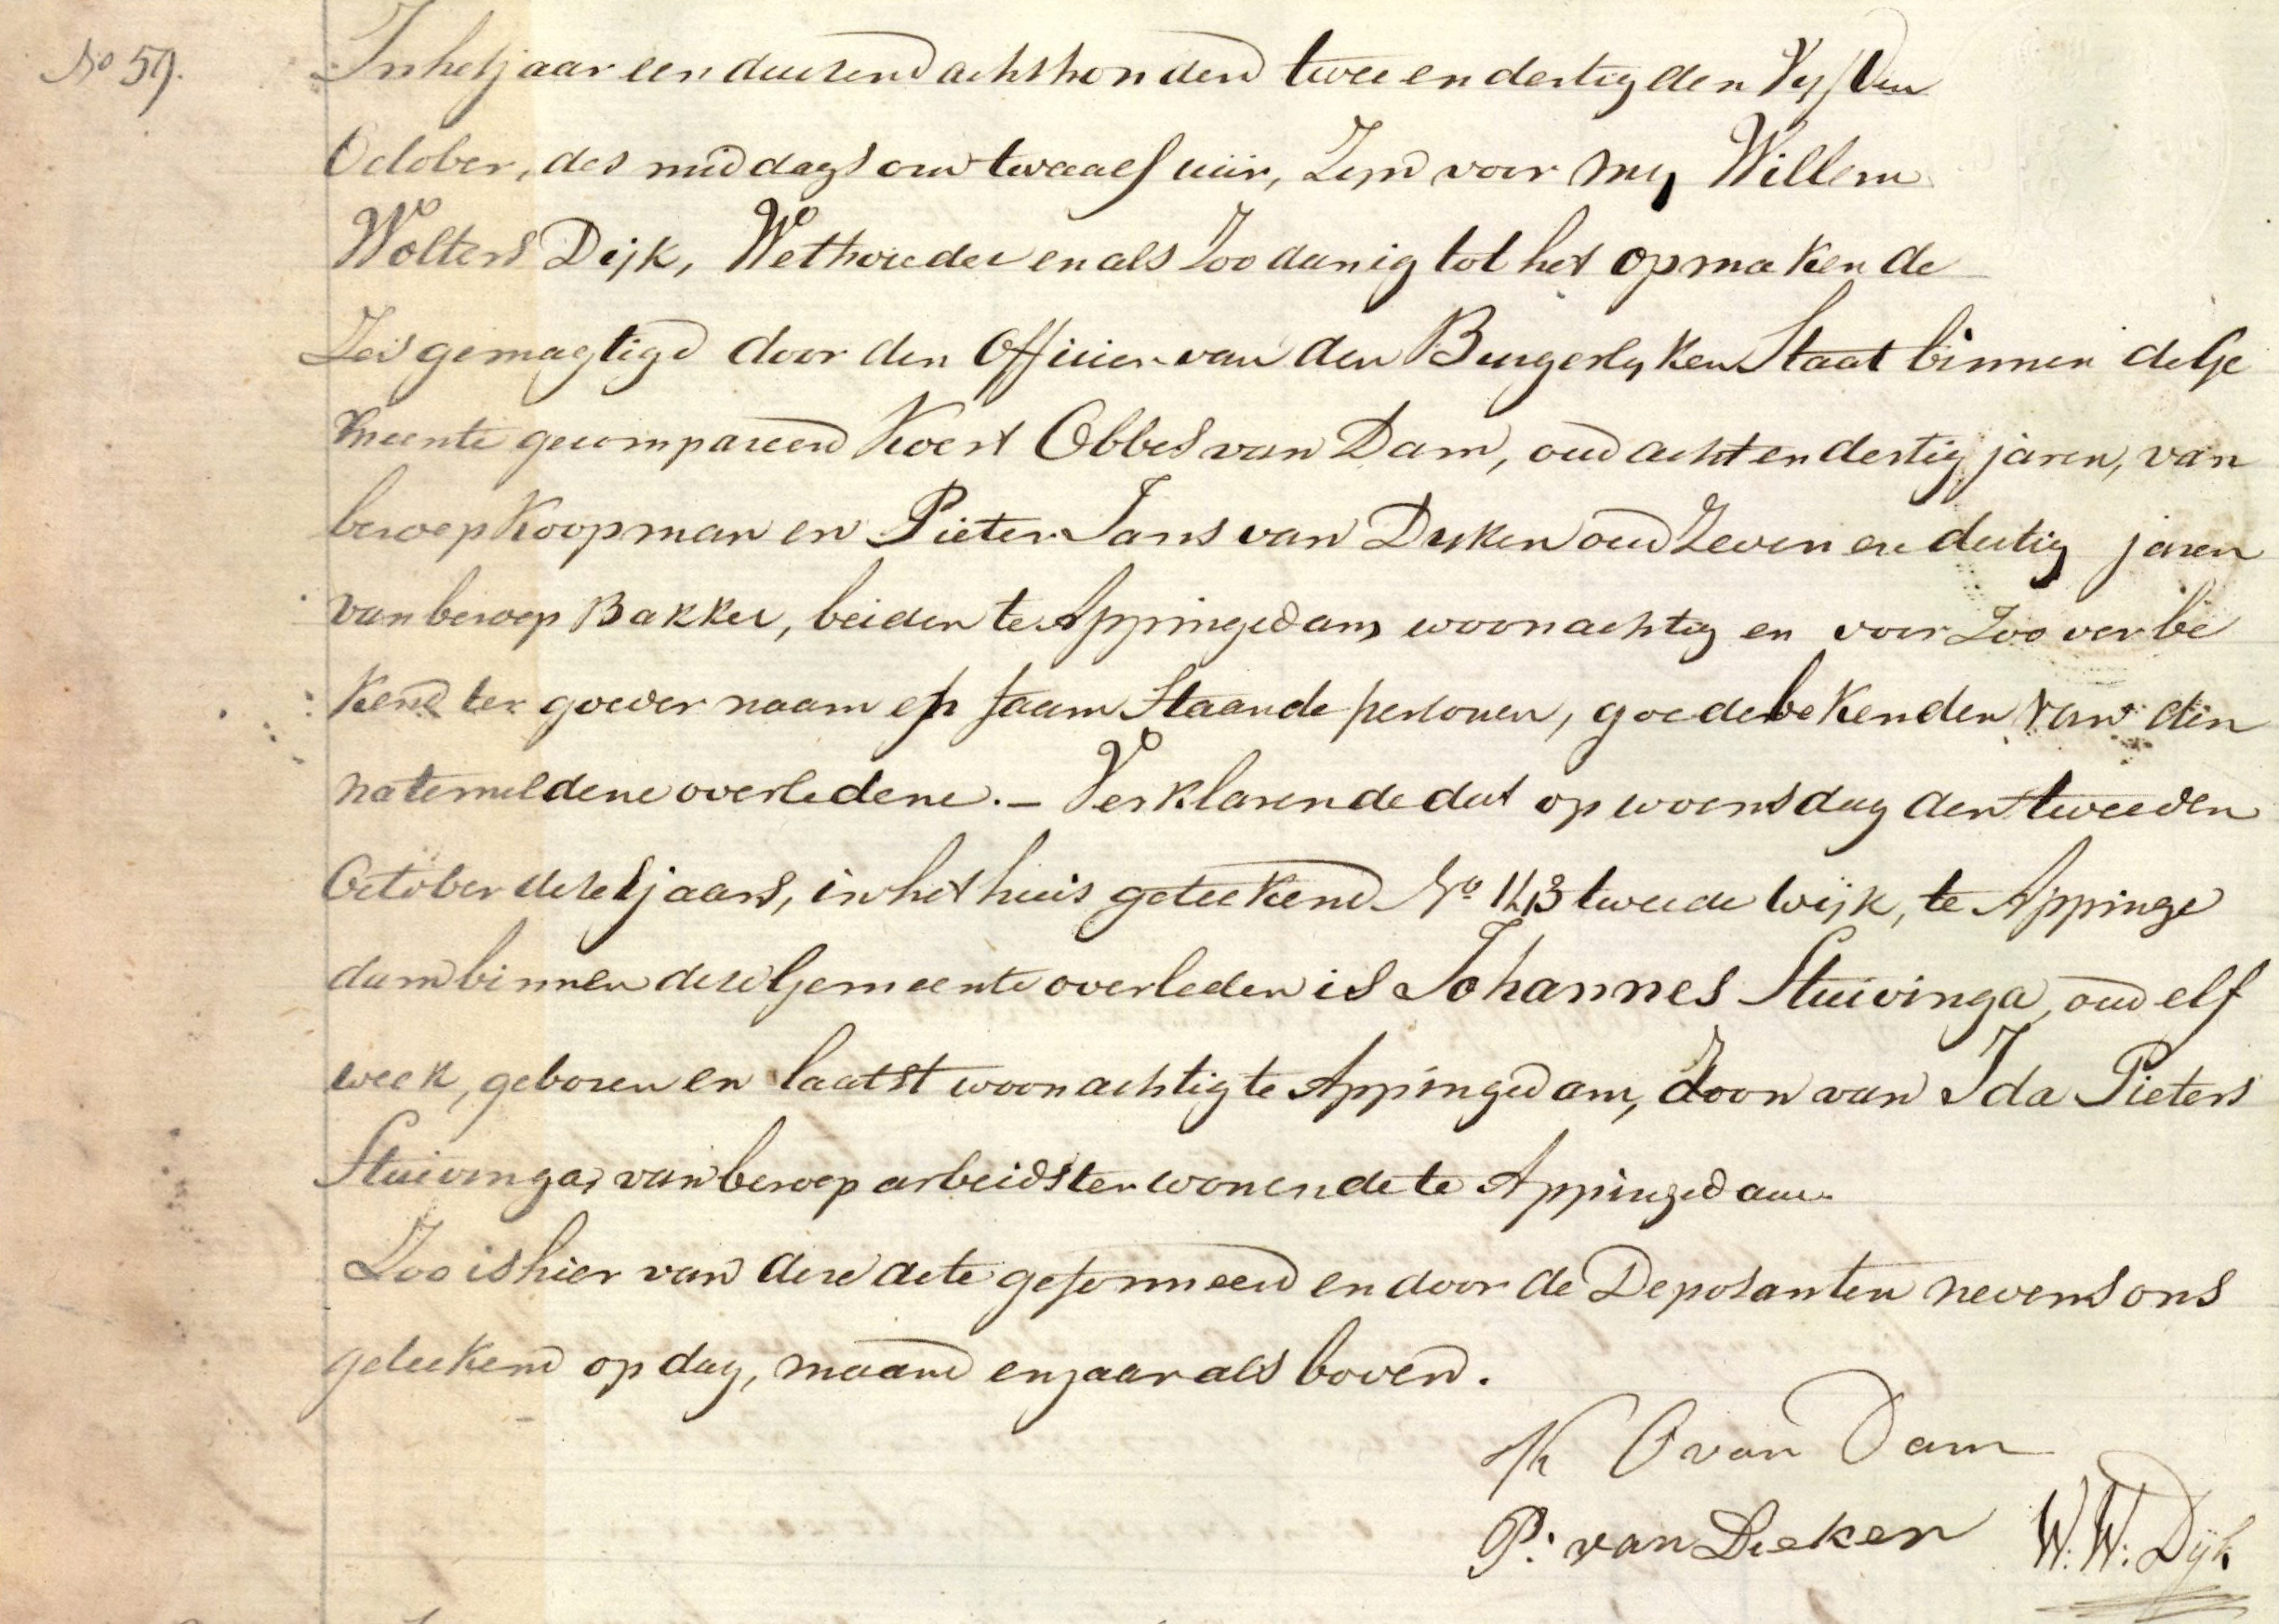 No 59.
In het jaar een duizend achthonderd twee en dertig den Vyfden
October, des middags om twaalf uur, Zyn voor my Willem
Wolters Dijk, Wethouder en als Zoodanig tot het opmaken de
Zes gemagtigd door den Officier van den Burgerlyken Staat binnen de Ge
meente gecompareerd Koert Obbes van Dam, oud acht en dertig jaren, van
beroep Koopman en Pieter Jans van Dyken oud Zeven en dertig jaren
van beroep Bakker, beiden te Appingedam woonachtig en voor Zoo ver be
kend ter goeder naam en faam Staande personen, goede bekenden van den
natemeldene overledene. – Verklarende dat op woensdag den tweeden
October dezes jaars, in het huis geteekend No 113 tweede wijk, te Appinge
dam binnen deze Gemeente overleden is Johannes Stuivinga, oud elf
week, geboren en laatst woonachtig te Appingedam, Zoon van Ida Pieters
Stuivinga, van beroep arbeidster wonende te Appingedam.
Zoo is hier van deze acte geformeerd en door de Deposanten nevens ons
geteekend op dag, maand en jaar als boven.
K O van Dam
P. van Dieken W. W. Dyk